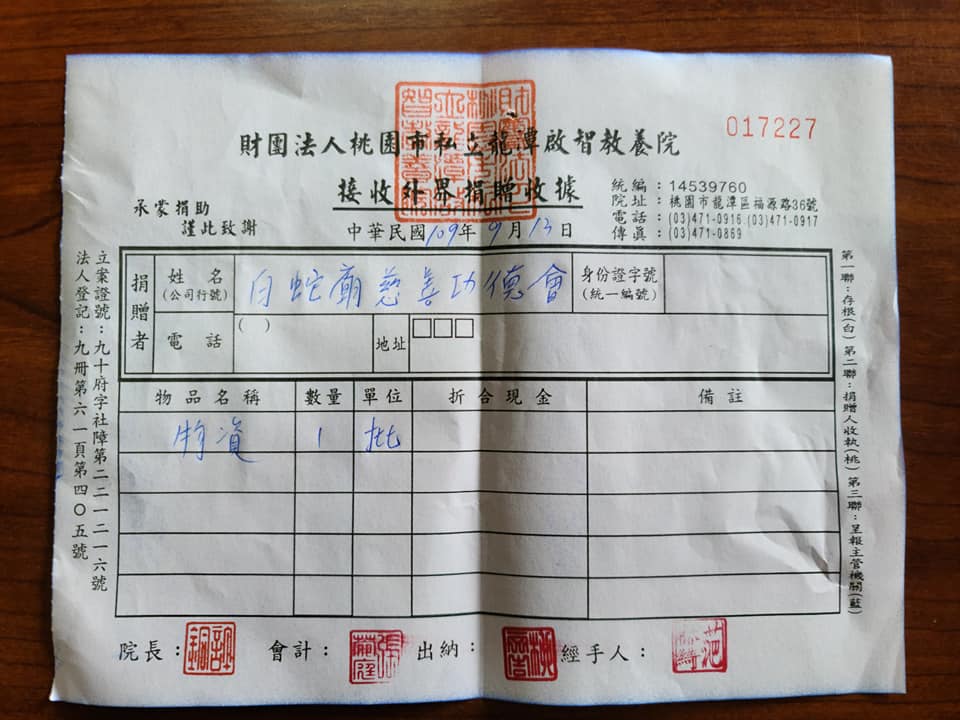 017227
財團法人桃園市私立龍潭啟智教養院
接收外界捐贈收據
承蒙捐助
謹此致謝
統編：14539760
院址：桃園市龍潭區福源路36號
電話：(03)471-0916.(03)471-0917
傳真：(03)471-0869
中華民國109年9月13日
立案證號：九十府字社障第二二一二一六號
法人登記：九冊第六一頁第四〇五號
捐贈者
姓名
(公司行號)
白蛇廟慈善功德會
身份證字號
(統一編號)
電話
( )
地址
物品名稱 數量 單位 折合現金 備註
物資 1 批
第一聯：存根(白) 第二聯：捐贈人收執(桃) 第三聯：呈報主管機關(藍)
院長： 會計： 出納： 經手人：